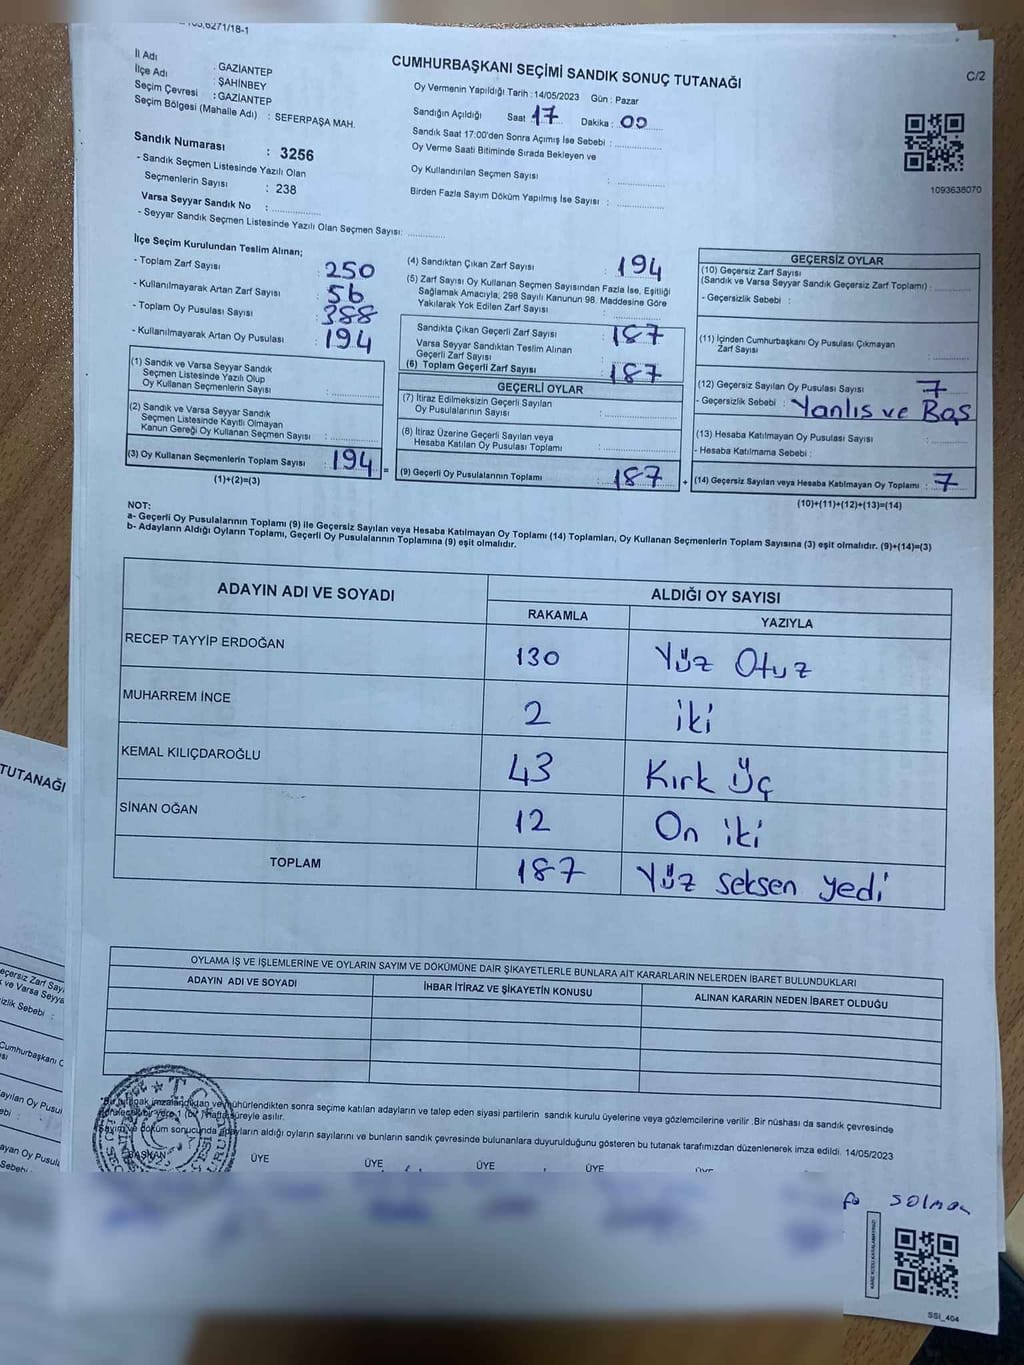 C/2
CUMHURBAŞKANI SEÇİMİ SANDIK SONUÇ TUTANAĞI
İl Adı : GAZİANTEP
İlçe Adı : ŞAHİNBEY
Seçim Çevresi : GAZİANTEP
Seçim Bölgesi (Mahalle Adı) : SEFERPAŞA MAH.
Sandık Numarası : 3256
- Sandık Seçmen Listesinde Yazılı Olan
Seçmenlerin Sayısı : 238
Varsa Seyyar Sandık No :
- Seyyar Sandık Seçmen Listesinde Yazılı Olan Seçmen Sayısı:
Oy Vermenin Yapıldığı Tarih :14/05/2023 Gün : Pazar
Sandığın Açıldığı Saat 17 Dakika : 00
Sandık Saat 17:00'den Sonra Açımış İse Sebebi :
Oy Verme Saati Bitiminde Sırada Bekleyen ve
Oy Kullandırılan Seçmen Sayısı :
Birden Fazla Sayım Döküm Yapılmış İse Sayısı :
1093638070
İlçe Seçim Kurulundan Teslim Alınan;
- Toplam Zarf Sayısı : 250
- Kullanılmayarak Artan Zarf Sayısı : 56
- Toplam Oy Pusulası Sayısı : 388
- Kullanılmayarak Artan Oy Pusulası : 194
(1) Sandık ve Varsa Seyyar Sandık
Seçmen Listesinde Yazılı Olup
Oy Kullanan Seçmenlerin Sayısı :
(2) Sandık ve Varsa Seyyar Sandık
Seçmen Listesinde Kayıtlı Olmayan
Kanun Gereği Oy Kullanan Seçmen Sayısı :
(3) Oy Kullanan Seçmenlerin Toplam Sayısı : 194 =
(1)+(2)=(3)
(4) Sandıktan Çıkan Zarf Sayısı : 194
(5) Zarf Sayısı Oy Kullanan Seçmen Sayısından Fazla İse, Eşitliği
Sağlamak Amacıyla; 298 Sayılı Kanunun 98. Maddesine Göre
Yakılarak Yok Edilen Zarf Sayısı :
Sandıkla Çıkan Geçerli Zarf Sayısı : 187
Varsa Seyyar Sandıktan Teslim Alınan
Geçerli Zarf Sayısı :
(6) Toplam Geçerli Zarf Sayısı : 187
GEÇERLİ OYLAR
(7) İtiraz Edilmeksizin Geçerli Sayılan
Oy Pusulalarının Sayısı :
(8) İtiraz Üzerine Geçerli Sayılan veya
Hesaba Katılan Oy Pusulası Toplamı :
(9) Geçerli Oy Pusulalarının Toplamı : 187 +
GEÇERSİZ OYLAR
(10) Geçersiz Zarf Sayısı
(Sandık ve Varsa Seyyar Sandık Geçersiz Zarf Toplamı) :
- Geçersizlik Sebebi :
(11) İçinden Cumhurbaşkanı Oy Pusulası Çıkmayan
Zarf Sayısı :
(12) Geçersiz Sayılan Oy Pusulası Sayısı : 7
- Geçersizlik Sebebi : Yanlıs ve Bos
(13) Hesaba Katılmayan Oy Pusulası Sayısı :
- Hesaba Katılmama Sebebi :
(14) Geçersiz Sayılan veya Hesaba Katılmayan Oy Toplamı : 7
(10)+(11)+(12)+(13)=(14)
NOT:
a- Geçerli Oy Pusulalarının Toplamı (9) ile Geçersiz Sayılan veya Hesaba Katılmayan Oy Toplamı (14) Toplamları, Oy Kullanan Seçmenlerin Toplam Sayısına (3) eşit olmalıdır. (9)+(14)=(3)
b- Adayların Aldığı Oyların Toplamı, Geçerli Oy Pusulalarının Toplamına (9) eşit olmalıdır.
ADAYIN ADI VE SOYADI ALDIĞI OY SAYISI
RAKAMLA YAZIYLA
RECEP TAYYİP ERDOĞAN 130 Yüz Otuz
MUHARREM İNCE 2 iki
KEMAL KILIÇDAROĞLU 43 Kırk Üç
SİNAN OĞAN 12 On iki
TOPLAM 187 Yüz seksen yedi
OYLAMA İŞ VE İŞLEMLERİNE VE OYLARIN SAYIM VE DÖKÜMÜNE DAİR ŞİKAYETLERLE BUNLARA AİT KARARLARIN NELERDEN İBARET BULUNDUKLARI
ADAYIN ADI VE SOYADI İHBAR İTİRAZ VE ŞİKAYETİN KONUSU ALINAN KARARIN NEDEN İBARET OLDUĞU
imzalandıktan ve mühürlendikten sonra seçime katılan adayların ve talep eden siyasi partilerin sandık kurulu üyelerine veya gözlemcilerine verilir .Bir nüshası da sandık çevresinde
süreyle asılır.
Sayım ve döküm sonucunda adayların aldığı oyların sayılarını ve bunların sandık çevresinde bulunanlara duyurulduğunu gösteren bu tutanak tarafımızdan düzenlenerek imza edildi. 14/05/2023
BAŞKAN ÜYE ÜYE ÜYE ÜYE ÜYE
SSI_404
TUTANAĞI